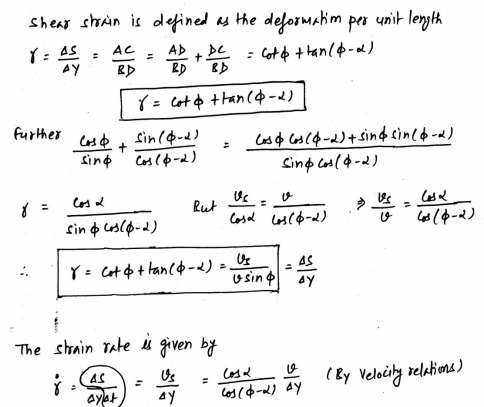 Shear strain is defined as the deformation per unit length
γ = ΔS/ΔY = AC/BD = AD/BD + DC/BD = cotϕ + tan(ϕ-α)
γ = cotϕ + tan(ϕ-α)
Further cosϕ/sinϕ + sin(ϕ-α)/cos(ϕ-α) = cosϕ cos(ϕ-α) + sinϕ sin(ϕ-α)/sinϕ cos(ϕ-α)
γ = cosα/sinϕ cos(ϕ-α) But vs/cosα = v/cos(ϕ-α) ⇒ vs/v = cosα/cos(ϕ-α)
∴ γ = cotϕ + tan(ϕ-α) = vs/v sinϕ = ΔS/ΔY
The strain rate is given by
γ̇ = ΔS/ΔYΔt = vs/ΔY = cosα/cos(ϕ-α) v/ΔY (By Velocity relations)